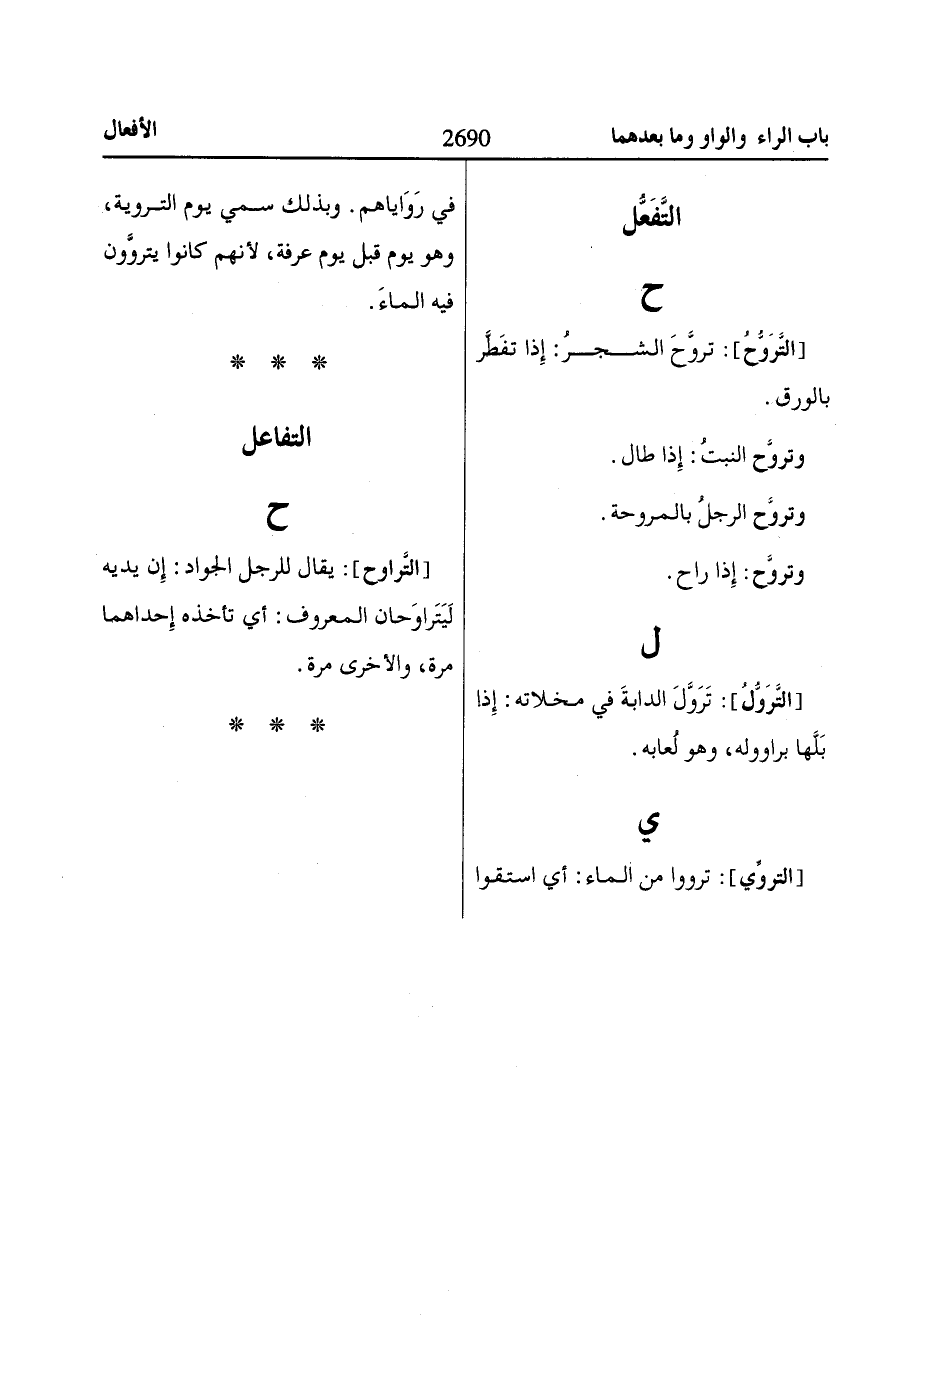 باب الراء والواو وما بعدهما
2690
الأفعال
التَّفَعُّل
ح
[التَّرَوُّحُ]: تروَّحَ الشجرُ: إِذا تفَطَّر
بالورق.
وتروَّح النبتُ: إِذا طال.
وتروَّح الرجلُ بالمروحة.
وتروَّح: إِذا راح.
ل
[التَّرَوُّلُ]: تَرَوَّلَ الدابةَ في مخلاته: إِذا
بَلَّها براووله، وهو لُعابه.
ي
[التروِّي]: ترووا من الماء: أي استقوا
في رَوَاياهم. وبذلك سمي يوم التروية،
وهو يوم قبل يوم عرفة، لأنهم كانوا يتروَّون
فيه الماءَ.
* * *
التفاعل
ح
[التَّراوح]: يقال للرجل الجواد: إِن يديه
لَيَتَراوَحان المعروف: أي تأخذه إِحداهما
مرة، والأخرى مرة.
* * *